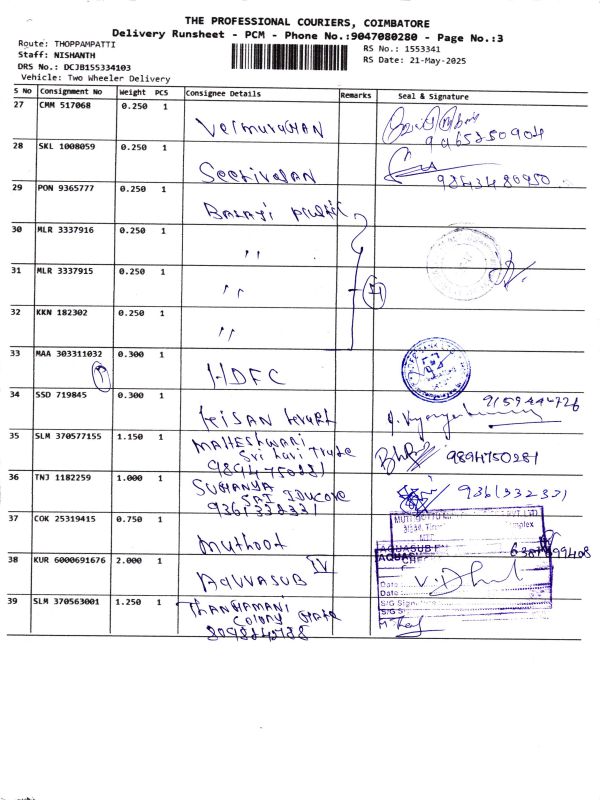 THE PROFESSIONAL COURIERS, COIMBATORE
Delivery Runsheet - PCM - Phone No.:9047080280 - Page No.:3
Route: THOPPAMPATTI
Staff: NISHANTH
DRS No.: DCJB155334103
Vehicle: Two Wheeler Delivery
RS No.: 1553341
RS Date: 21-May-2025
S No Consignment No Weight PCS Consignee Details Remarks Seal & Signature
27 CMM 517068 0.250 1
9965250904
28 SKL 1008059 0.250 1
9843480950
29 PON 9365777 0.250 1 BALAJI
30 MLR 3337916 0.250 1 "
31 MLR 3337915 0.250 1 "
32 KKN 182302 0.250 1 "
33 MAA 303311032 0.300 1 HDFC
34 SSD 719845 0.300 1
9159444726
35 SLM 370577155 1.150 1 MAHESHWARI
Sri hari Trade
9894750281 9894750281
36 TNJ 1182259 1.000 1 SUKANYA
SAI
9361332331 9361332331
37 COK 25319415 0.750 1 Muthoot
38 KUR 6000691676 2.000 1 AQUASUB IV
AQUASUB
39 SLM 370563001 1.250 1 THANGAMANI
COLONY